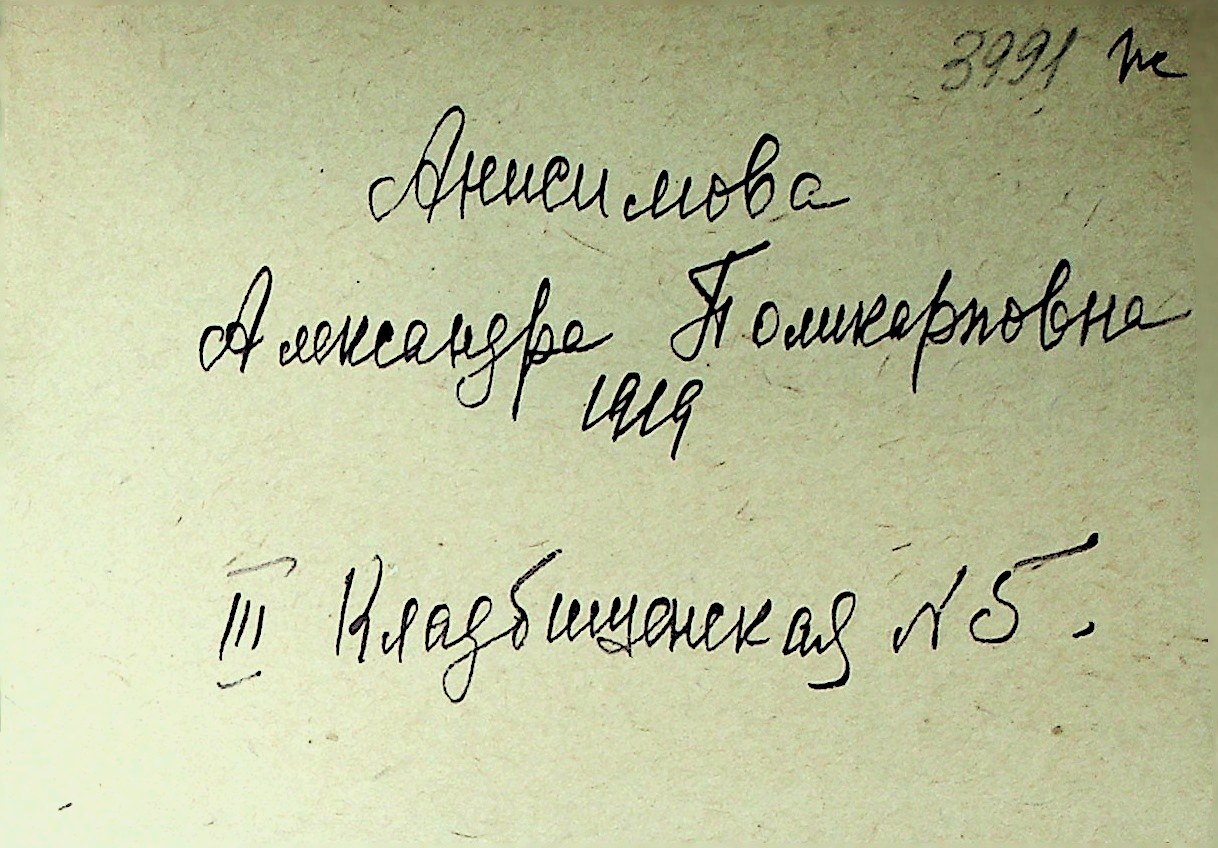 3991 Же
Анисимова
Александра Поликарповна
1919
III Кладбищенская N 5.